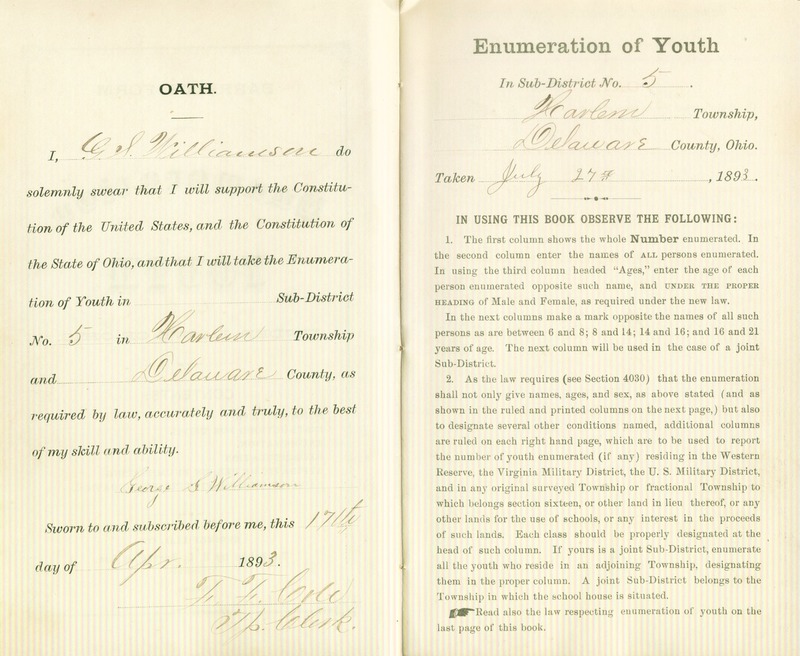 OATH.
I, G. S. Williamson do
solemnly swear that I will support the Constitu-
tion of the United States, and the Constitution of
the State of Ohio, and that I will take the Enumera-
tion of Youth in Sub-District
No. 5 in Harlem Township
and Delaware County, as
required by law, accurately and truly, to the best
of my skill and ability.
George S Williamson
Sworn to and subscribed before me, this 17th
day of Apr. 1893.
Tp. Clerk.
Enumeration of Youth
In Sub-District No. 5.
Harlem Township,
Delaware County, Ohio.
Taken July 27th, 1893.
IN USING THIS BOOK OBSERVE THE FOLLOWING:
1. The first column shows the whole Number enumerated. In
the second column enter the names of ALL persons enumerated.
In using the third column headed "Ages," enter the age of each
person enumerated opposite such name, and UNDER THE PROPER
HEADING of Male and Female, as required under the new law.
In the next columns make a mark opposite the names of all such
persons as are between 6 and 8; 8 and 14; 14 and 16; and 16 and 21
years of age. The next column will be used in the case of a joint
Sub-District.
2. As the law requires (see Section 4030) that the enumeration
shall not only give names, ages, and sex, as above stated (and as
shown in the ruled and printed columns on the next page,) but also
to designate several other conditions named, additional columns
are ruled on each right hand page, which are to be used to report
the number of youth enumerated (if any) residing in the Western
Reserve, the Virginia Military District, the U. S. Military District,
and in any original surveyed Township or fractional Township to
which belongs section sixteen, or other land in lieu thereof, or any
other lands for the use of schools, or any interest in the proceeds
of such lands. Each class should be properly designated at the
head of such column. If yours is a joint Sub-District, enumerate
all the youth who reside in an adjoining Township, designating
them in the proper column. A joint Sub-District belongs to the
Township in which the school house is situated.
Read also the law respecting enumeration of youth on the
last page of this book.